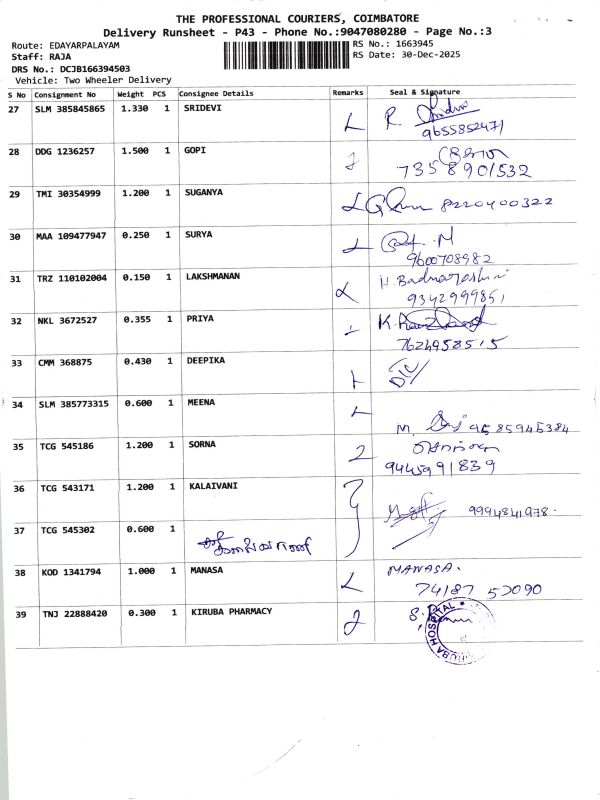 THE PROFESSIONAL COURIERS, COIMBATORE
Delivery Runsheet - P43 - Phone No.:9047080280 - Page No.:3
Route: EDAYARPALAYAM
RS No.: 1663945
Staff: RAJA
RS Date: 30-Dec-2025
DRS No.: DCJB166394503
Vehicle: Two Wheeler Delivery
S No Consignment No Weight PCS Consignee Details Remarks Seal & Signature
27 SLM 385845865 1.330 1 SRIDEVI R.
9655852471
28 DDG 1236257 1.500 1 GOPI
7358901532
29 TMI 30354999 1.200 1 SUGANYA 8220400322
30 MAA 109477947 0.250 1 SURYA M
9600708982
31 TRZ 110102004 0.150 1 LAKSHMANAN
9342999851
32 NKL 3672527 0.355 1 PRIYA K.
7624958515
33 CMM 368875 0.430 1 DEEPIKA
34 SLM 385773315 0.600 1 MEENA
M. 9585945384
35 TCG 545186 1.200 1 SORNA
9445991839
36 TCG 543171 1.200 1 KALAIVANI
9994841978
37 TCG 545302 0.600 1
38 KOD 1341794 1.000 1 MANASA MANASA.
74187 52090
39 TNJ 22888420 0.300 1 KIRUBA PHARMACY
KIRUBA HOSPITAL